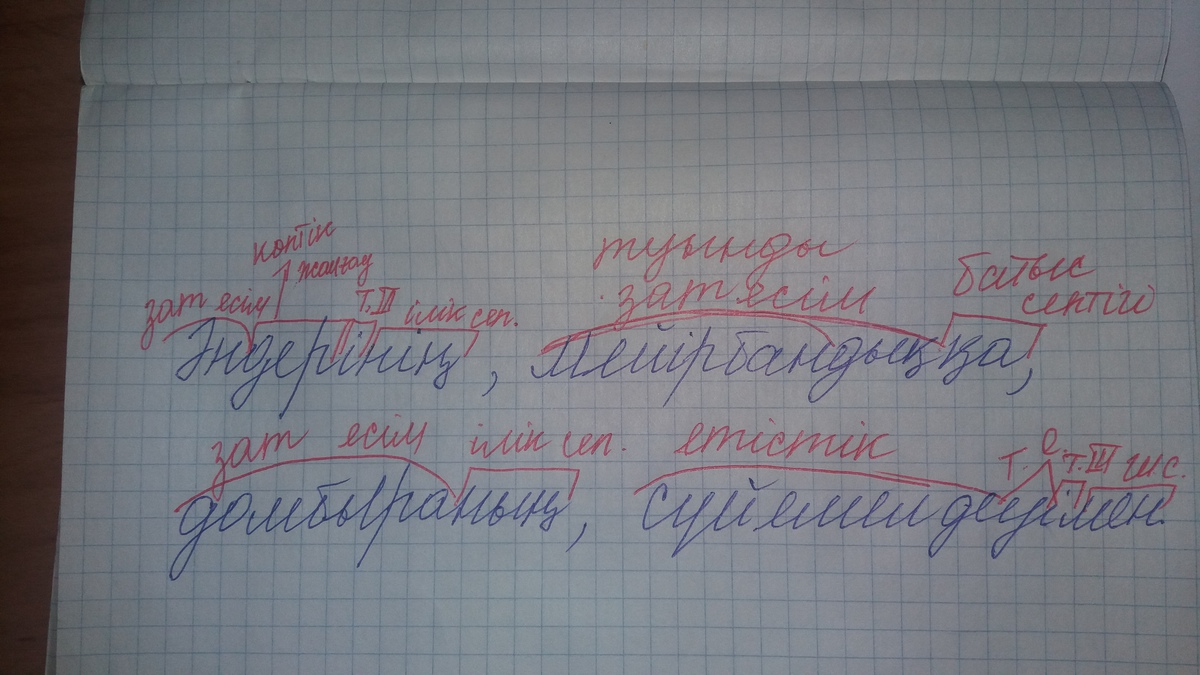 көптік
жалғау
зат есім Т.III ілік сеп.
туынды
зат есім
батыс
септігі
Әндерінің, Мейірбандыққа,
зат есім ілік сеп. етістік Т. Е. Т.III
домбыраның, сүйемелдеуімен.